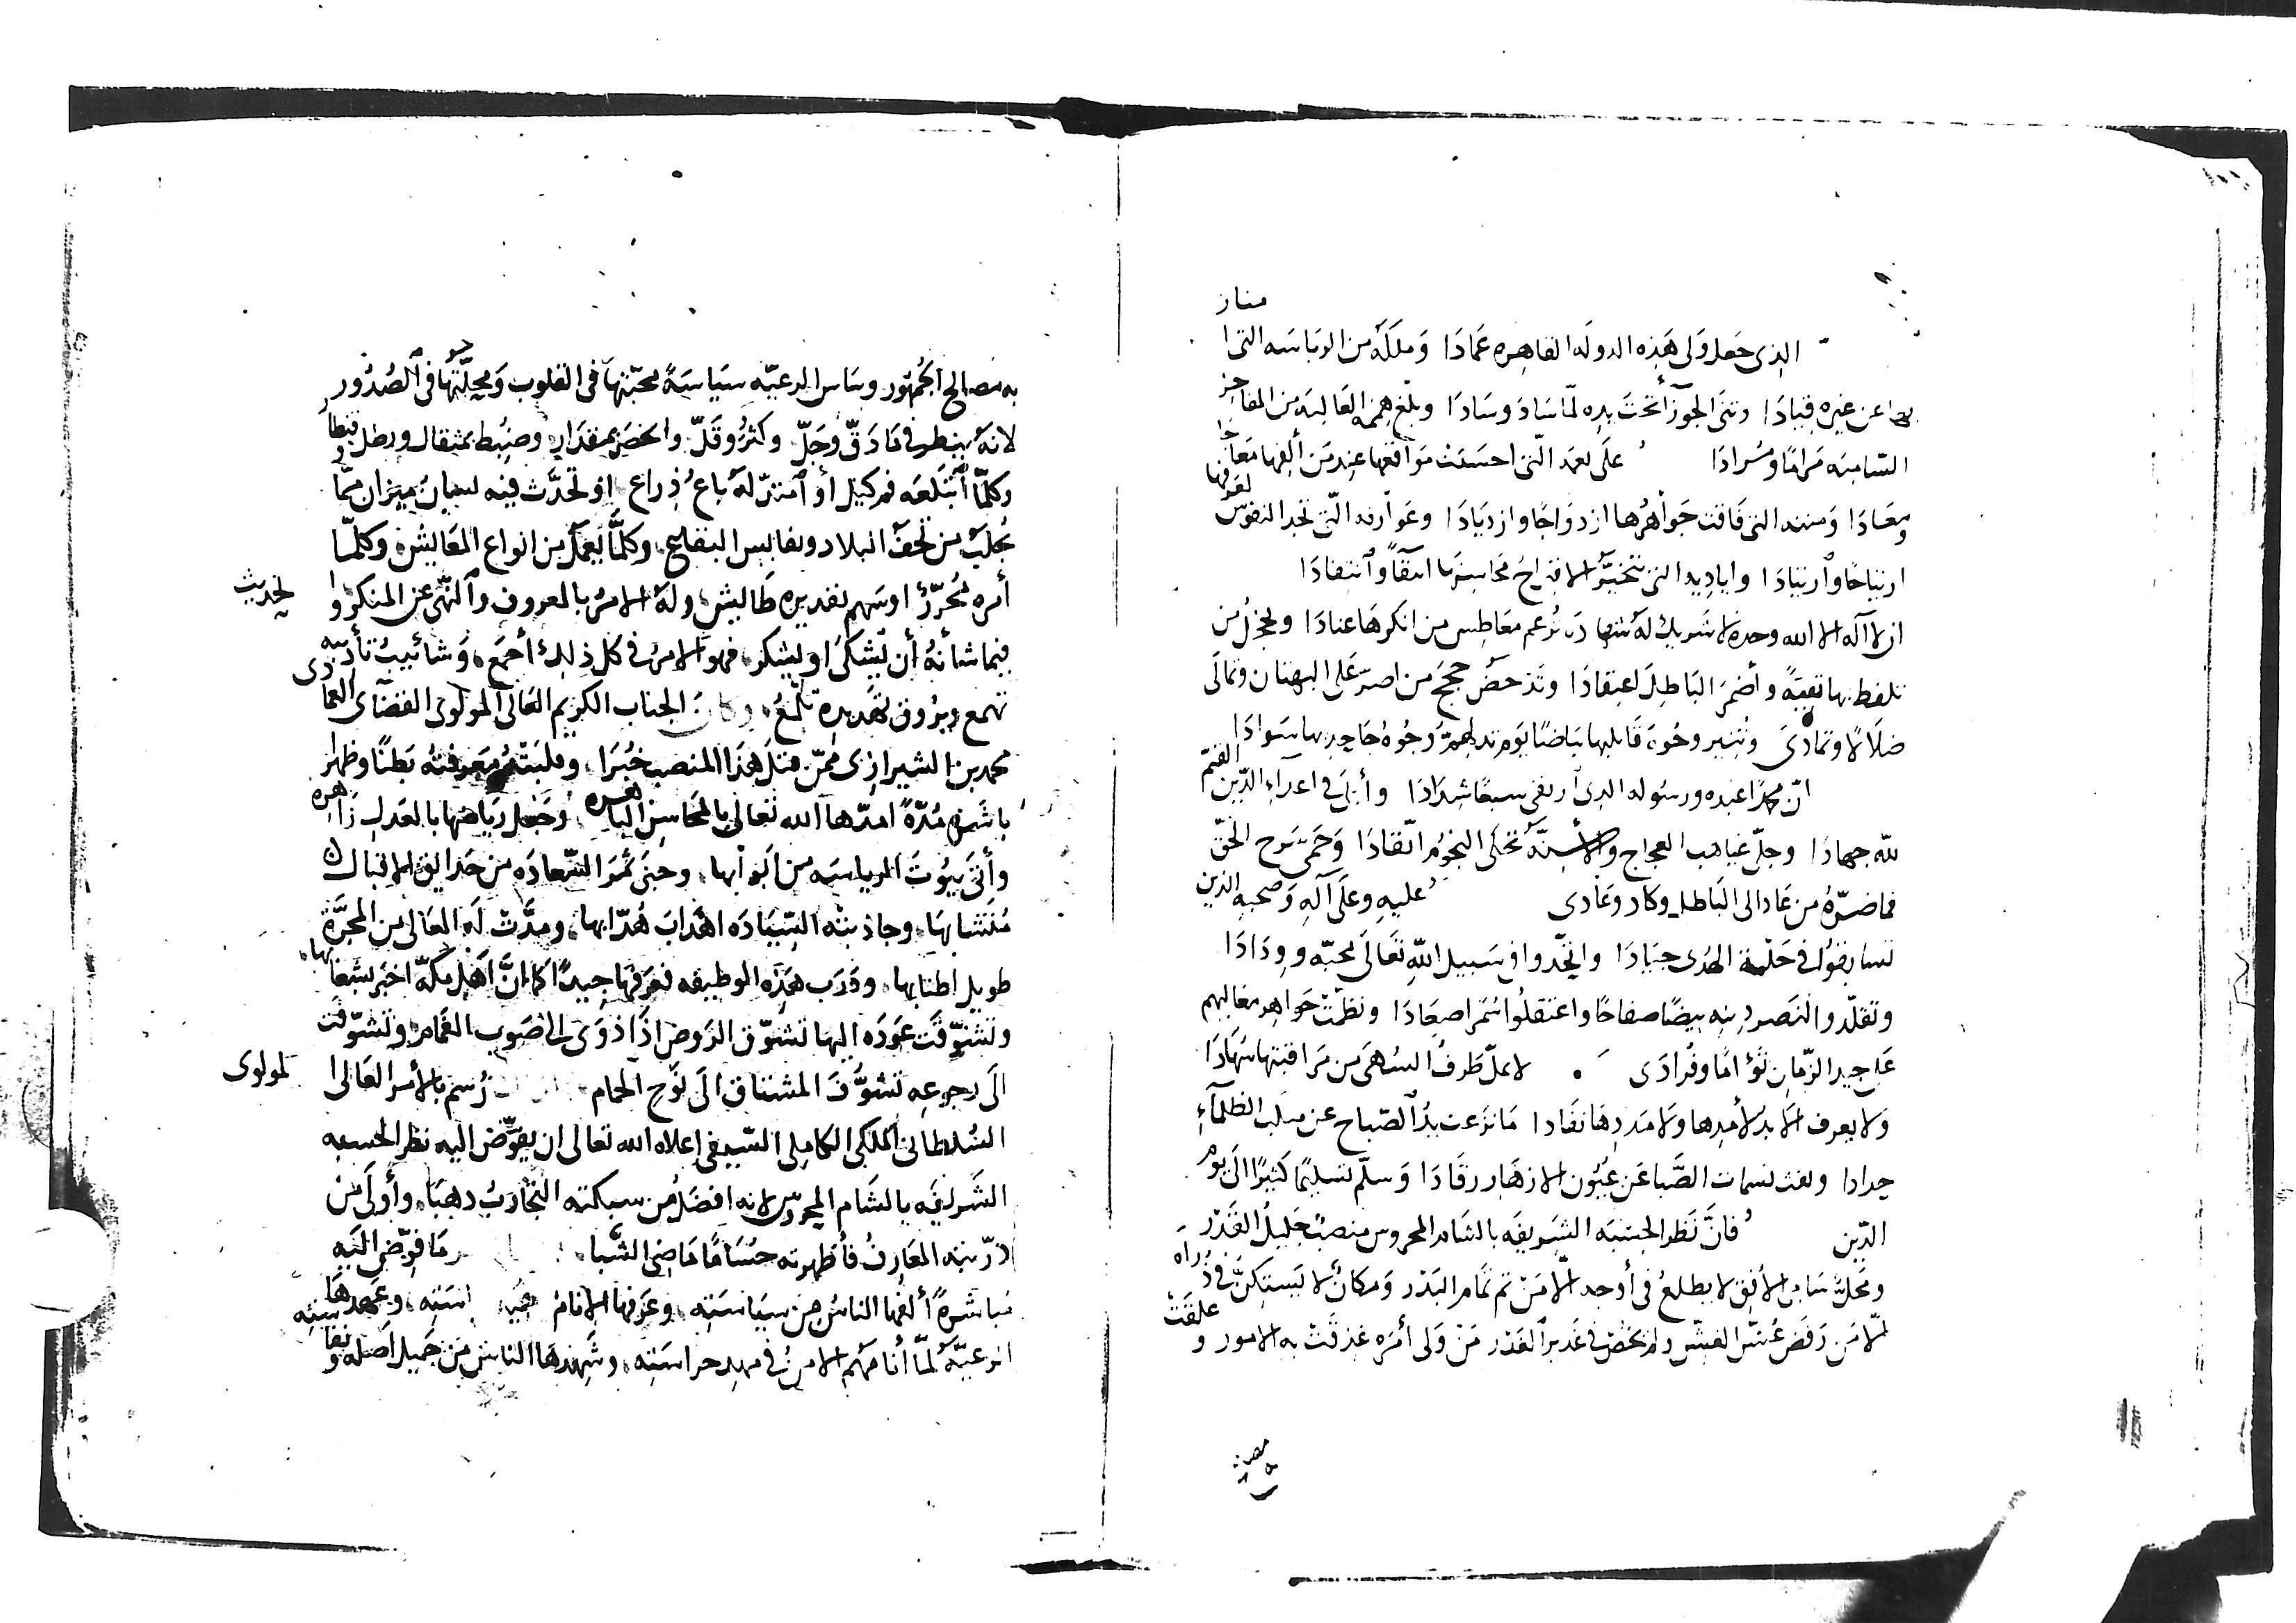 الذى جعل ولى هذه الدوله القاهره عمادا وملكه من الرياسه التى ا
مناز
عن غيره قيادا وثنى الجوزآ تحت يده لمّا ساد وسادا وبلّغ هممه العاليه من المفاخر
السّاميه مَرامًا ومُرادا على نعمه الّتى احسنت مَواقعها عند مَن ألفها مَعاجا
ومعادا ومننه التى فاقت جَواهرُها ازدواجًا وازديادا وعَوارفه الّتى تجد النفوس لعَرفها
ارتياحًا وٱرتيادا واياديه التى تتخيّر الاقتراحُ محاسنها انتقآً وٱنتقادا
ان لا آله الا الله وحده لا شريك له شهاده تُرغم معاطس من انكرها عنادا وتخجل من
تلفظ بها تقيّةً وأضمرَ البَاطلَ اعتقادا وتدحض حججَ من اصرّ على البهتان وتمالَى
ضلالًا وتمادى وتنير وجُوه قابليها بَياضًا يوم تدلهمّ وجُوه جَاحديها سَوادَا
انّ محمدًا عبده ورسوله الذى ارتقى سبعًا شدادا وأبلَى فى اعدآء الدّين القيّم
لله جهادا وجلّى غياهب العجاج والأسنّة تحكى النجُوم اتّقادا وحَمى سَرح الحقّ
فما ضرّهُ من عَاد الى البَاطل وكاد وعَادى عليهِ وعلَى آلهِ وَصحبه الذين
تسابقوُا فى حَلْبة الهُدى جيَادا واتخّدوا فى سَبيل اللهِ تعَالَى محبّه وودَادَا
وتقلّدوا لنَصر دينه بيضًا صفاحًا واعتقلُوا سُمرا صعَادا ونظمتْ جَواهر معَاليهم
عَلى جيد الزّمان تُؤامًا وفُرادَى لا يملّ طَرفُ السُهَى من مرَاقبتها سُهَادَا
وَلا يعرف الأبدُ لأمدها ولا مَددها نفَادا مَا نزعت يَدُ ٱلصّباح عن منكب الظلمآءِ
حدادا ونفت نسمات الصَّبا عَن عيُون الازهَار رقَادَا وَسلّم تسليمًا كثيرًا الىَ يوم
الدّين فانَّ نَظر الحسْبَه الشريفَه بالشام المحروس منصبٌ جَليلُ القَدْر
ومحلٌّ سَامى الأفق لا يطلعُ فى أوجه الّا مَن تم تمام البَدر وَمكانٌ لا يَستكنّ فى ذُراه
الّا مَن رَفَض غُشّ الغشّ ولم يخُض فى غَدير ٱلغَدْر مَن وَلى أمرَه غدقَتْ به الامور و علقَتْ
به مصالح الجُمهور وسَاس الرعيّه سيَاسَةً محبّتها فى القلوب ومحلّتها فى ٱلصُدُور
لانهُ ينظر فى مَا دَقّ وجَلّ وكثُر وقَلّ وانحصَر بمقدار وضُبط بمثقال ورطل وقنطار
وكلمّا ٱبتلعَه فم كيل أو ٱمتدّ لهُ باع ذراع او تحدّث فيه لسانُ ميزان ممّا
يُجلبَ من تحف البلاد ونفايس البقاع وكلمَّا يُعمَل من انواع المعَايش وكلمّا
أمره مُحرّرٌ اوسَهم تقديره طَايش ولهُ الامرُ بالمعروف وٱلنّهىُ عن المنكر وا لحديث
فيما شأنهُ أن يُشكَى او يُشكر فهو الامرُ فى كل ذلِكَ أجمَع وَشآئيبُ تأديبه
تهمع وبرُوق تهديده تلمعُ وكان الجناب الكريم العَالى المولوى القضآى العمادى
محمد بن الشيرازى ممّن قتلَ هَذا المنصب خُبرَا وقلبَتهُ مَعرفتُه بَطنًا وظهرا
بَاشَره مُدّةً امدّها الله تعَالى بالمحَاسن البَاهره وجَعل ريَاضها بالعَدل زَاهره
وأتَى بيُوتَ الرياسَه من ابَوابها وجنَى ثمرَ السّعادَه من حَدايق الاقبال
وجاذبته السّيَادَه اهْدابَ هُدّابها ومدَّتْ لَه المعَالى من المجرَّة
طويل اطنابها ودَرَب هَذه الوظيفه فعَرفَها جيدًا كما انَّ اهل مكّه اخبَر بشعابها
وتشوّقت عَودَه اليها تشوّق الرَوض اذَا ذوَى الى صَوب الغَمام وتشوّفت
الَى رجوعه تشوُّفَ المشتاق الَى نَوْح الحمام رُسم بالأمر العَالى ا لمولوى
السُلطانى الملكى الكاملى السّيفى اعلاه الله تعَالى ان يفوِّض اليه نظر الحسبه
الشريفَه بالشَام المحروُس لانه افضَلُ من سبكته التجَاربُ ذهبَا وأولَى مَن
درّبته المعَارفُ فأظهرته حسَامًا مَاضىَ الشَّبا مَا فوّض اليَه
مُباشرةً ألفهَا الناسُ من سيَاسَته وعَرفها الانامُ وعَهدهَا
الرعيّةُ لمّا أنامَهُم الامنُ فى مهد حراسَته وشَهدهَا الناس من جَميل أصله و